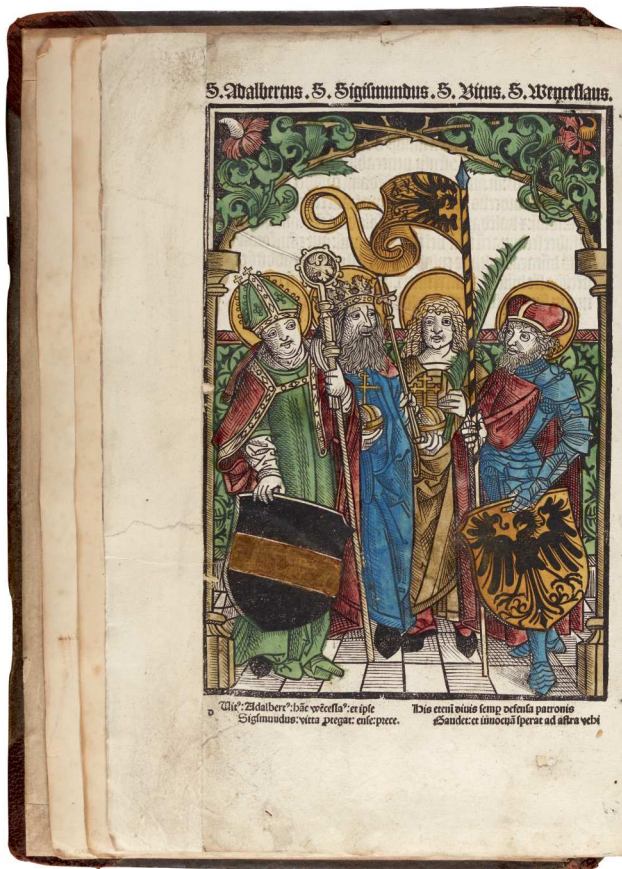 S. Adalbertus. S. Sigismundus. S. Vitus. S. Wenceslaus.
Vitꝰ: Adalbertꝰ: hāc wēceslaꝰ: et ipse
Sigismundus: vitta ꝓtegat: ense: prece.
His etenī diuis semꝑ defensa patronis
Gaudet: et innocuā sperat ad astra vehi